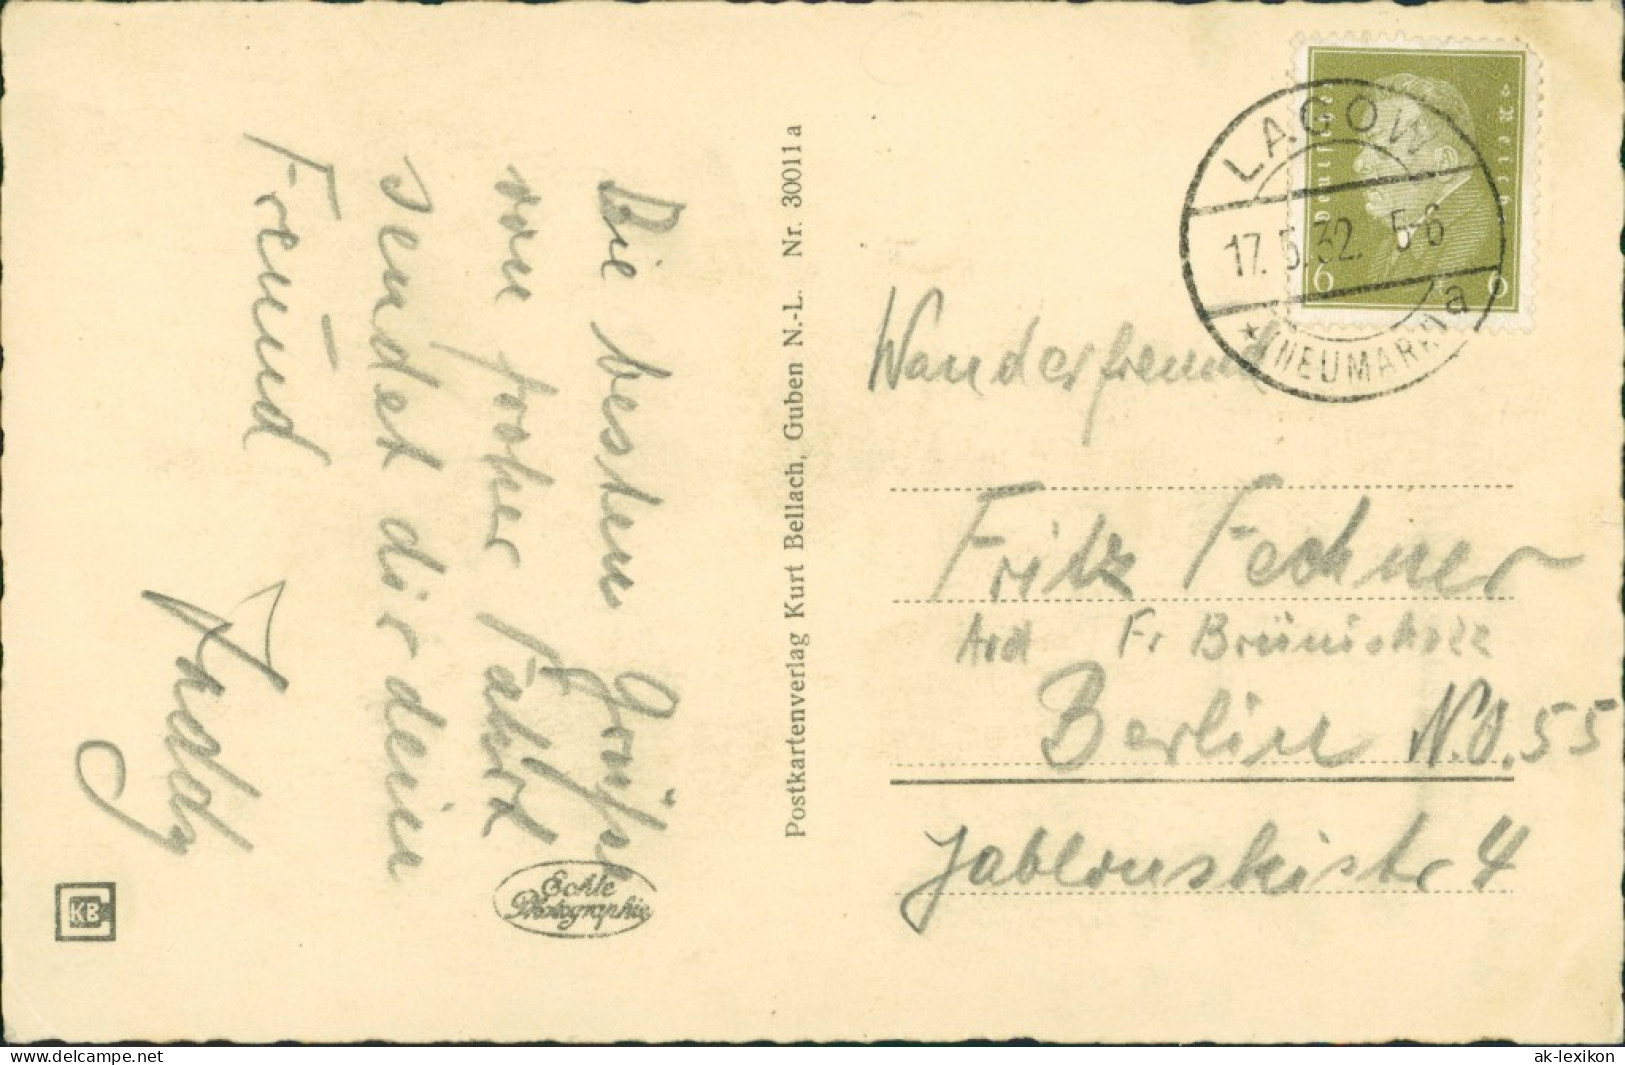 Die besten Grüße
von froher Fahrt
sendet dir dein
Freund
KB
Echte
Photographie
Postkartenverlag Kurt Bellach, Guben N.-L. Nr. 30011 a
Deutsches Reich
6 6
LAGOW
17. 5. 32. 5-6
* (NEUMARK) a
Wanderfreund
Fritz Fechner
Fr
Berlin N.O. 55
Jablonskistr 4
www.delcampe.net
ak-lexikon